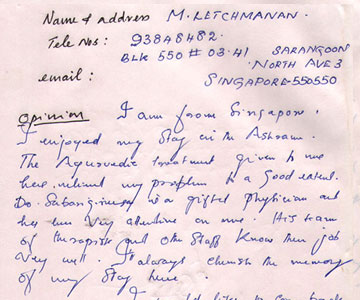 Name & address M. LETCHMANAN.
Tele Nos: 93848482.
BLK 550 # 03.41 SARANGOON
NORTH AVE 3
email: SINGAPORE-550550
Opinion I am from Singapore.
I enjoyed my stay in the Ashram.
The Ayurvedic treatment given to me
here relient my problem to a Good extent.
Do. Sabariginivasan is a gifted physician and
has been very attentive on me. His team
of therapists and other staff know their job
very well. I always cherish the memory
of my stay here.